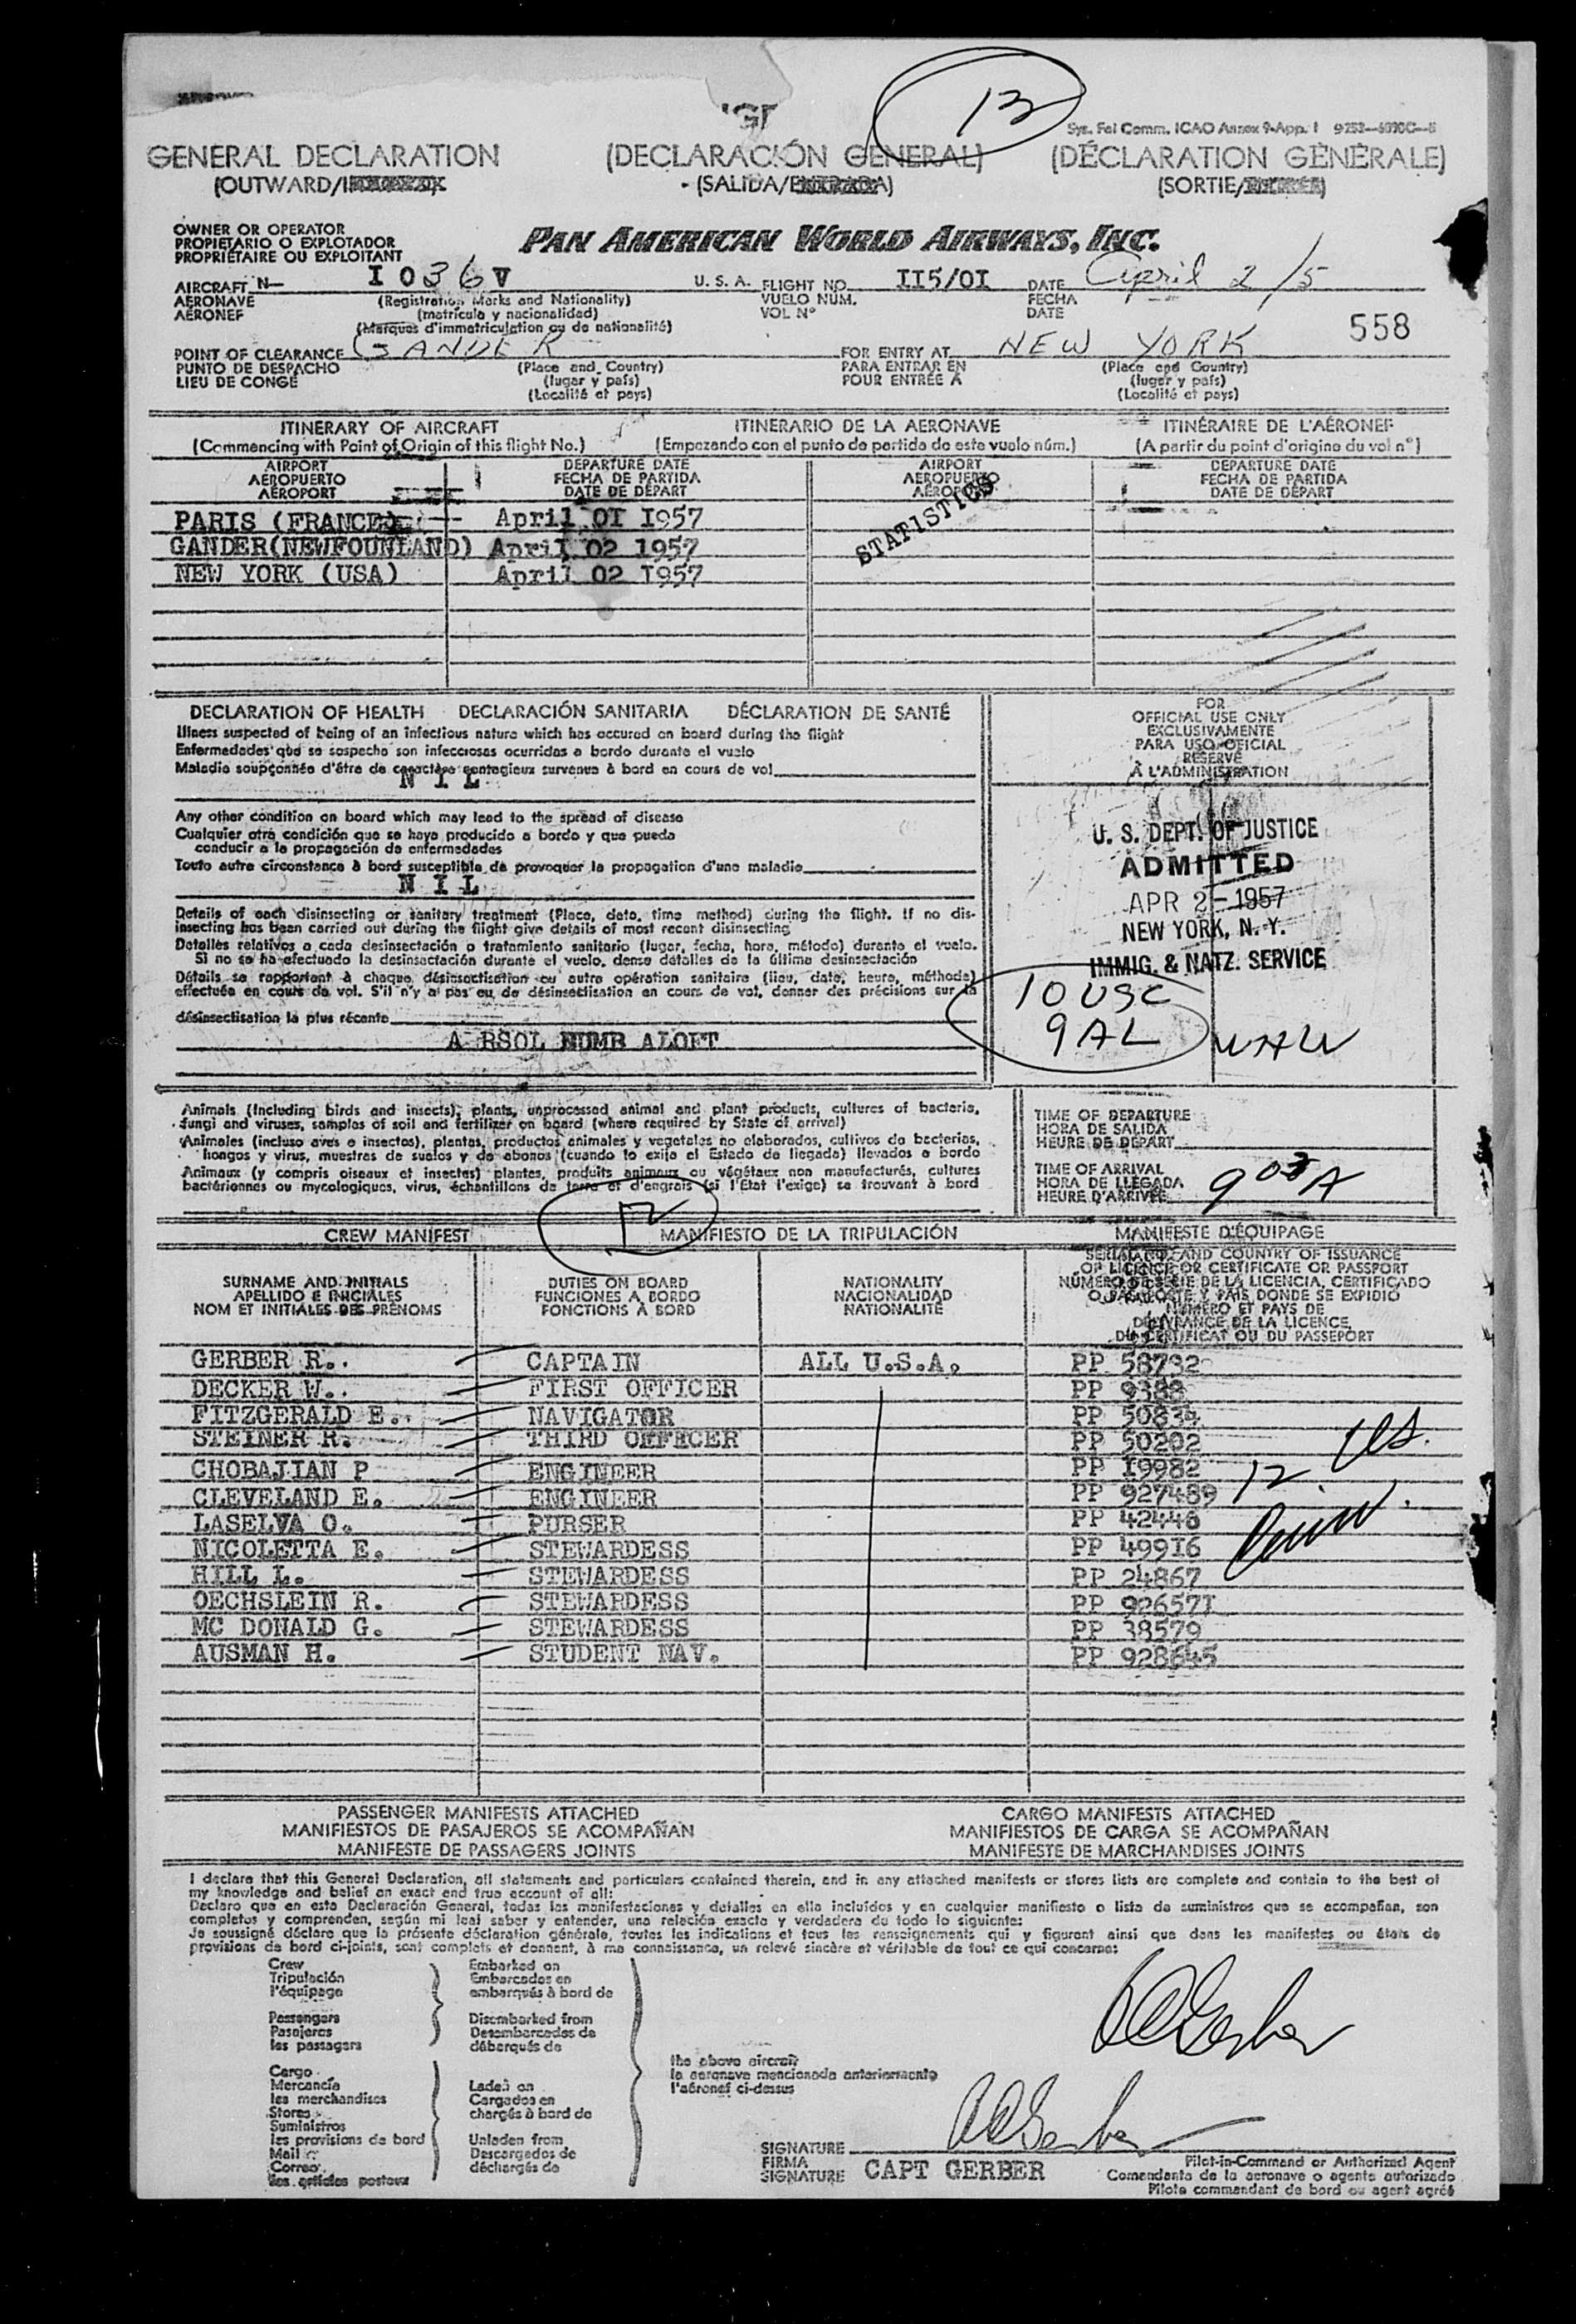 13
Sys. Fel Comm. ICAO Annex 9-App. I
GENERAL DECLARATION (DECLARACIÓN GENERAL) (DÉCLARATION GÈNÈRALE)
(OUTWARD/ (SALIDA/ (SORTIE/
OWNER OR OPERATOR
PROPIETARIO O EXPLOTADOR
PROPRIÉTAIRE OU EXPLOITANT
PAN AMERICAN WORLD AIRWAYS, INC.
AIRCRAFT N— I036V U. S. A. FLIGHT NO. II5/0I DATE April 2/5
AERONAVE (Registration Marks and Nationality) VUELO NÚM. FECHA
AÉRONEF (matrícula y nacionalidad) VOL N° DATE
(Marques d'immatriculation ou de nationalité)
558
POINT OF CLEARANCE GANDER FOR ENTRY AT NEW YORK
PUNTO DE DESPACHO (Place and Country) PARA ENTRAR EN (Place and Country)
LIEU DE CONGÉ (lugar y país) POUR ENTRÉE À (lugar y país)
(Localité et pays) (Localité et pays)
ITINERARY OF AIRCRAFT ITINERARIO DE LA AERONAVE ITINÉRAIRE DE L'AÉRONEF
(Commencing with Point of Origin of this flight No.) (Empezando con el punto de partida de este vuelo núm.) (A partir du point d'origine du vol n°)
AIRPORT DEPARTURE DATE AIRPORT DEPARTURE DATE
AEROPUERTO FECHA DE PARTIDA AEROPUERTO FECHA DE PARTIDA
AÉROPORT DATE DE DÉPART AÉROPORT DATE DE DÉPART
STATISTICS
PARIS (FRANCE) April 0I I957
GANDER(NEWFOUNLAND) April 02 1957
NEW YORK (USA) April 02 I957
DECLARATION OF HEALTH DECLARACIÓN SANITARIA DÉCLARATION DE SANTÉ
Illness suspected of being of an infectious nature which has occured on board during the flight
Enfermedades que se sospecha son infecciosas ocurridas a bordo durante el vuelo
Maladie soupçonnée d'être de caractère contagieux survenue à bord en cours de vol
N I L
Any other condition on board which may lead to the spread of disease
Cualquier otra condición que se haya producido a bordo y que pueda
conducir a la propagación de enfermedades
Toute autre circonstance à bord susceptible de provoquer la propagation d'une maladie
N I L
Details of each disinsecting or sanitary treatment (Place, date, time method) during the flight. If no dis-
insecting has been carried out during the flight give details of most recent disinsecting
Detalles relativos a cada desinsectación o tratamiento sanitario (lugar, fecha, hora, método) durante el vuelo.
Si no se ha efectuado la desinsectación durante el vuelo, dense detalles de la última desinsectación
Détails se rapportant à chaque désinsectisation ou autre opération sanitaire (lieu, date, heure, méthode)
effectuée en cours de vol. S'il n'y a pas eu de désinsectisation en cours de vol, donner des précisions sur la
désinsectisation la plus récente
A RSOL ALOFT
FOR
OFFICIAL USE ONLY
EXCLUSIVAMENTE
PARA USO OFICIAL
RÉSERVÉ
À L'ADMINISTRATION
U. S. DEPT. OF JUSTICE
ADMITTED
APR 2 - 1957
NEW YORK, N. Y.
IMMIG. & NATZ. SERVICE
10 USC
9 AL
Animals (Including birds and insects), plants, unprocessed animal and plant products, cultures of bacteria,
fungi and viruses, samples of soil and fertilizer on board (where required by State of arrival)
Animales (incluso aves e insectos), plantas, productos animales y vegetales no elaborados, cultivos de bacterias,
hongos y virus, muestras de suelos y de abonos (cuando lo exija el Estado de llegada) llevados a bordo
Animaux (y compris oiseaux et insectes) plantes, produits animaux ou végétaux non manufacturés, cultures
bactériennes ou mycologiques, virus, échantillons de terre et d'engrais (si l'Etat l'exige) se trouvant à bord
TIME OF DEPARTURE
HORA DE SALIDA
HEURE DE DÉPART
TIME OF ARRIVAL
HORA DE LLEGADA
HEURE D'ARRIVÉE 903A
12
CREW MANIFEST MANIFIESTO DE LA TRIPULACIÓN MANIFESTE D'ÉQUIPAGE
SURNAME AND INITIALS
APELLIDO E INICIALES
NOM ET INITIALES DES PRÉNOMS
DUTIES ON BOARD
FUNCIONES A BORDO
FONCTIONS À BORD
NATIONALITY
NACIONALIDAD
NATIONALITÉ
SERIAL NO. AND COUNTRY OF ISSUANCE
OF LICENCE OR CERTIFICATE OR PASSPORT
NÚMERO DE SERIE DE LA LICENCIA, CERTIFICADO
O PASAPORTE Y PAÍS DONDE SE EXPIDIÓ
NUMÉRO ET PAYS DE
DÉLIVRANCE DE LA LICENCE,
DU CERTIFICAT OU DU PASSEPORT
GERBER R. CAPTAIN ALL U.S.A. PP 58732
DECKER W. FIRST OFFICER PP 9388
FITZGERALD E. NAVIGATOR PP 50839
STEINER R. THIRD OFFICER PP 50202
CHOBAJIAN P ENGINEER PP I9982
CLEVELAND E. ENGINEER PP 927489
LASELVA O. PURSER PP 42448
NICOLETTA E. STEWARDESS PP 499I6
HILL L. STEWARDESS PP 24867
OECHSLEIN R. STEWARDESS PP 92657I
MC DONALD G. STEWARDESS PP 38579
AUSMAN H. STUDENT NAV. PP 928645
12 US.
PASSENGER MANIFESTS ATTACHED CARGO MANIFESTS ATTACHED
MANIFIESTOS DE PASAJEROS SE ACOMPAÑAN MANIFIESTOS DE CARGA SE ACOMPAÑAN
MANIFESTE DE PASSAGERS JOINTS MANIFESTE DE MARCHANDISES JOINTS
I declare that this General Declaration, all statements and particulars contained therein, and in any attached manifests or stores lists are complete and contain to the best of
my knowledge and belief an exact and true account of all:
Declaro que en esta Declaración General, todas las manifestaciones y detalles en ella incluídos y en cualquier manifiesto o lista de suministros que se acompañan, son
completos y comprenden, según mi leal saber y entender, una relación exacta y verdadera du todo lo siguiente:
Je soussigné déclare que la présente déclaration générale, toutes les indications et tous les renseignements qui y figurent ainsi que dans les manifestes ou états de
provisions de bord ci-joints, sont complets et donnent, à ma connaissance, un relevé sincère et véritable de tout ce qui concerne:
Crew Embarked on
Tripulación Embarcados en
l'équipage embarqués à bord de
Passengers Disembarked from
Pasajeros Desembarcados de
les passagers débarqués de
the above aircraft
la aeronave mencionada anteriormente
l'aéronef ci-dessus
Cargo
Mercancía Laden on
les merchandises Cargados en
Stores chargés à bord de
Suministros
les provisions de bord Unladen from
Mail Descargados de
Correo déchargés de
les articles postaux
SIGNATURE
FIRMA
SIGNATURE CAPT GERBER
Pilot-in-Command or Authorized Agent
Comandante de la aeronave o agente autorizado
Pilote commandant de bord ou agent agréé